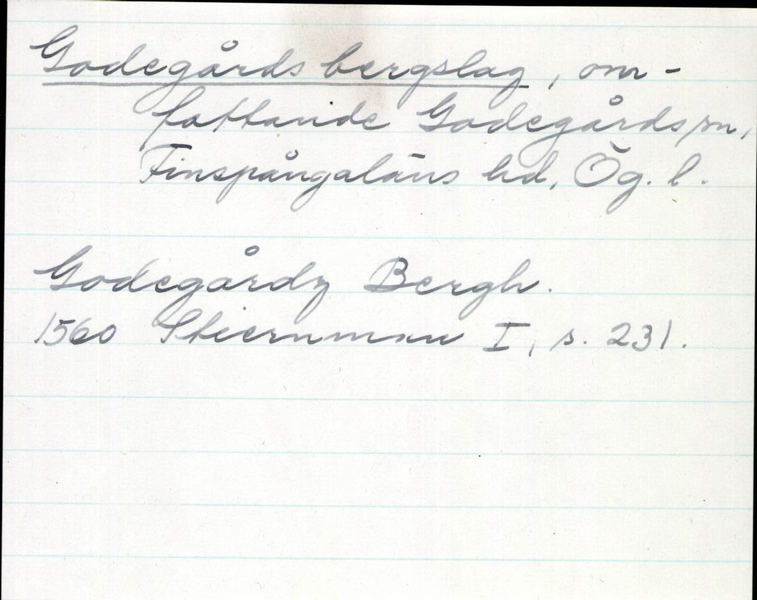 Godegårds bergslag, om-
fattande Godegårds sn,
Finspångaläns hd, Ög. l.
Godegårdz Bergh.
1560 Stiernman I, s. 231.